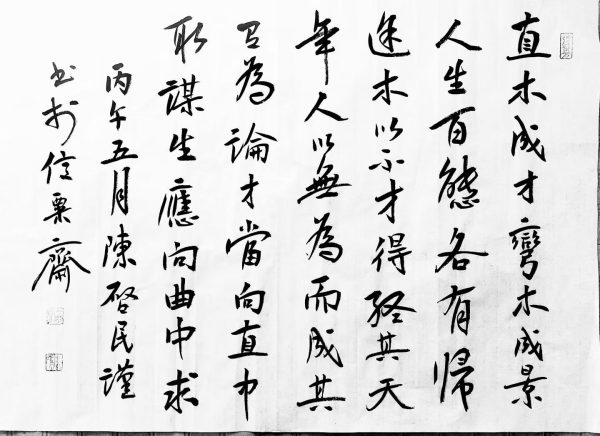 直木成才彎木成景
人生百態各有帰
途木以不才得終其天
年人以無為而成其
為論才當向直中
取謀生應向曲中求
丙午五月陳啓民謹
书於信粟齋